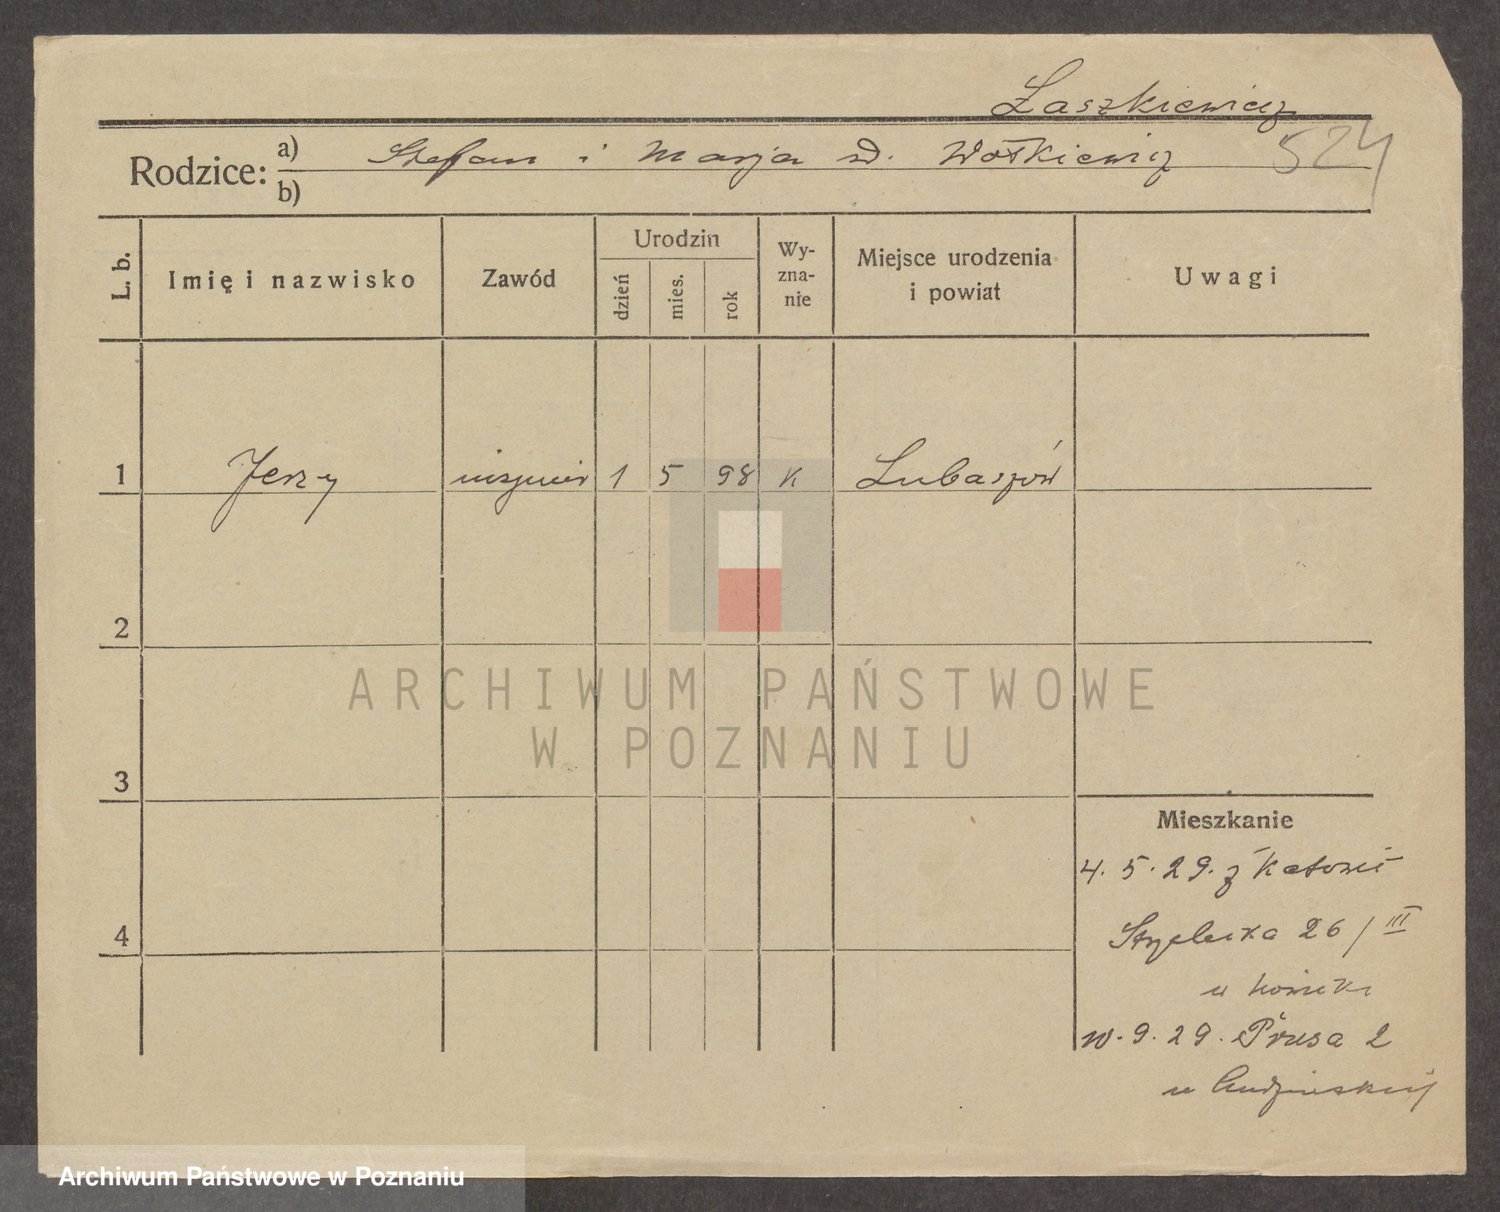 Łaszkiewicz
524
Rodzice: a) Stefan i Marja zd. Wołkiewicz
b)
L. b.
Imię i nazwisko
Zawód
Urodzin
dzień
mies.
rok
Wy-
zna-
nie
Miejsce urodzenia
i powiat
Uwagi
1 Jerzy inżynier 1 5 98 K Lubaszów
2
3
4
Mieszkanie
4. 5. 29. z Katowic
Strzelecka 26/III
u
9. 29. Prusa 2
u
ARCHIWUM PAŃSTWOWE
W POZNANIU
Archiwum Państwowe w Poznaniu